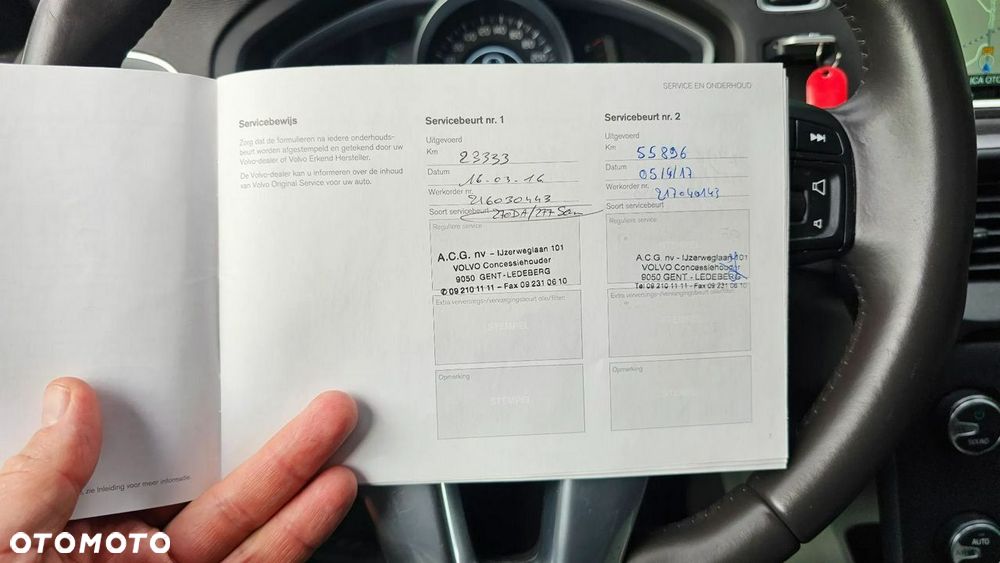 SERVICE EN ONDERHOUD
Servicebewijs
Zorg dat de formulieren na iedere onderhouds-
beurt worden afgestempeld en getekend door uw
Volvo-dealer of Volvo Erkend Hersteller.
De Volvo-dealer kan u informeren over de inhoud
van Volvo Original Service voor uw auto.
Servicebeurt nr. 1
Uitgevoerd
Km 23333
Datum 16-03-16
Werkorder nr. 216030443
Soort servicebeurt 270DA/277
Reguliere service
A.C.G. nv - IJzerweglaan 101
VOLVO Concessiehouder
9050 GENT - LEDEBERG
✆ 09 210 11 11 - Fax 09 231 06 10
Extra verversings-/vervangingsbeurt olie/filter:
STEMPEL
Opmerking
STEMPEL
Servicebeurt nr. 2
Uitgevoerd
Km 55896
Datum 05/4/17
Werkorder nr. 217040143
Soort servicebeurt
Reguliere service
STEMPEL
A.C.G. nv - IJzerweglaan 101
VOLVO Concessiehouder
9050 GENT - LEDEBERG
Tel 09 210 11 11 - Fax 09 231 06 10
Extra verversings-/vervangingsbeurt olie/filter:
STEMPEL
Opmerking
STEMPEL
zie Inleiding voor meer informatie.
SOUND
AUTO
OTOMOTO